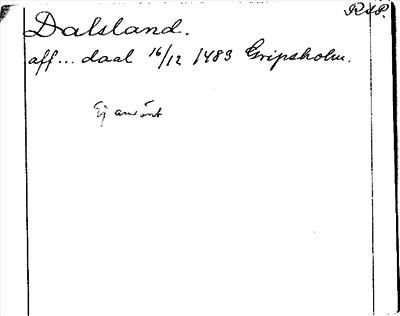 RAP.
Dalsland.
aff... daal 16/12 1483 Gripsholm.
Ej använt